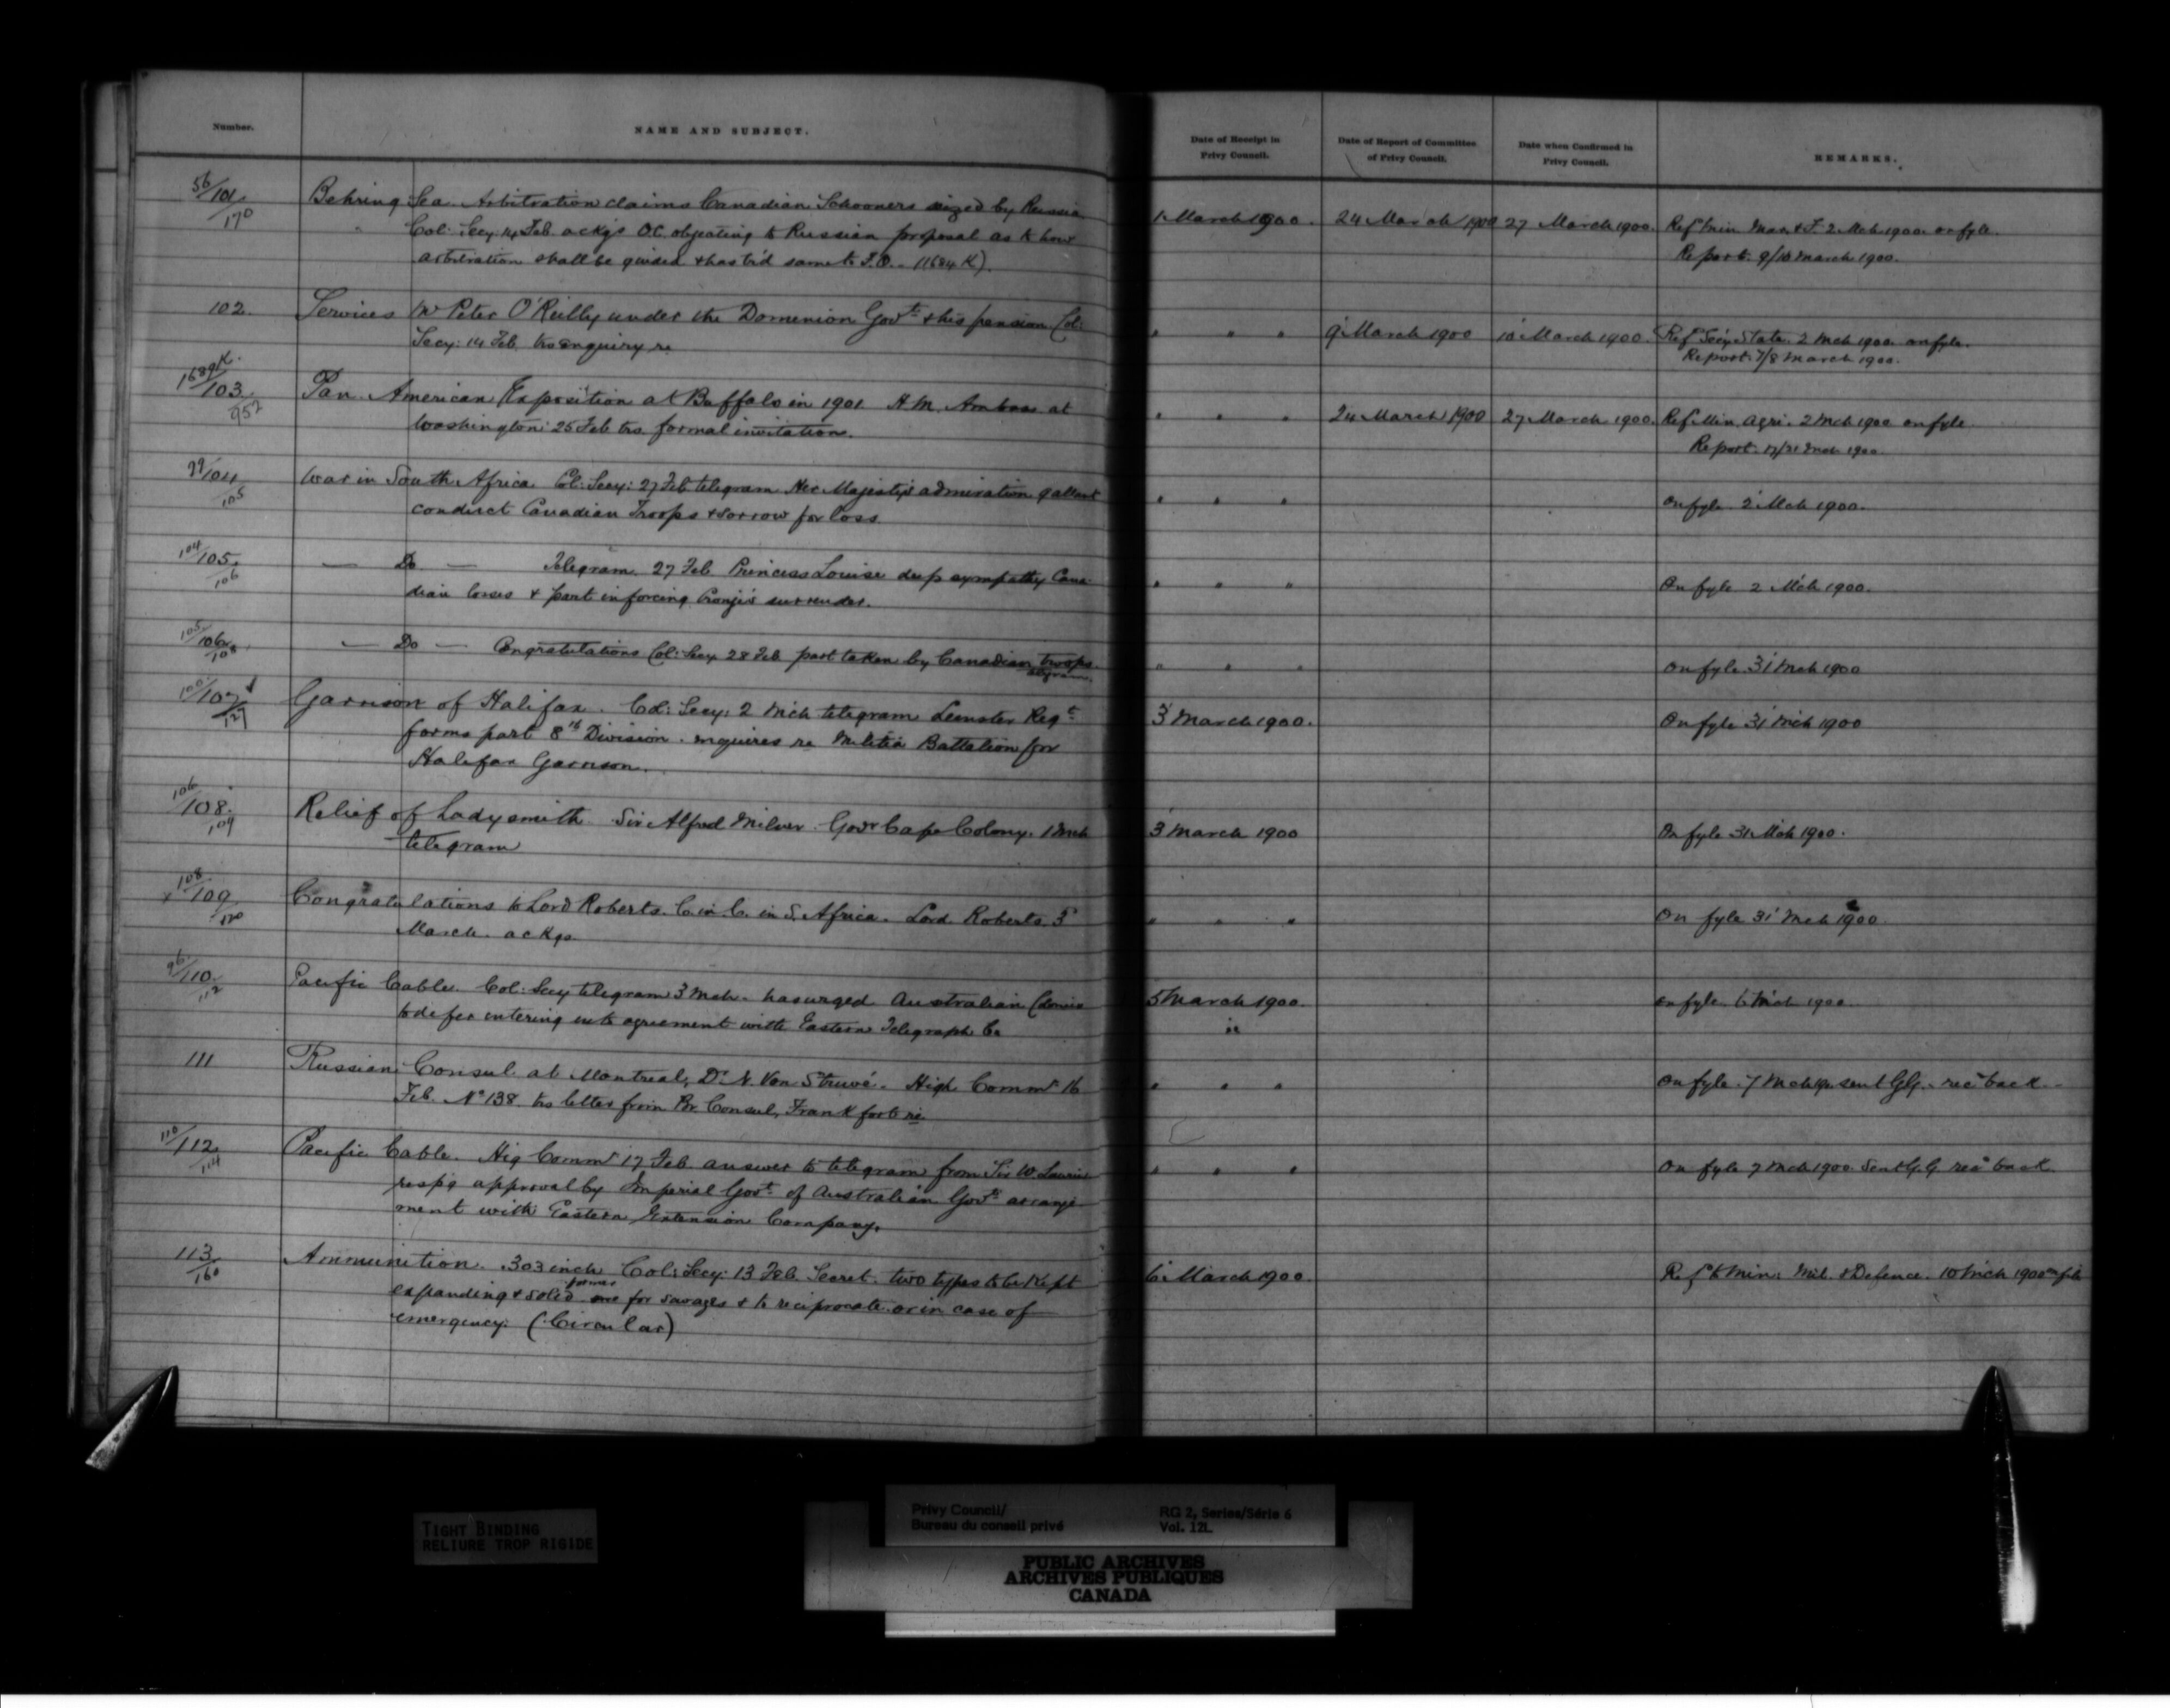 Number.
NAME AND SUBJECT.
Date of Receipt in
Privy Council.
Date of Report of Committee
of Privy Council.
Date when Confirmed in
Privy Council.
REMARKS.
56/101/170 Behring Sea. Arbitration claims Canadian Schooners seized by Russia
Col: Secy: 14 Feb. ackgs O.C. objecting to Russian proposal as to how
arbitration shall be guided & has tr'd same to F.O. (1684 K).
1 March 1900. 24 March 1900 27 March 1900. Refd Min Mar. & F. 2 Mch 1900. on fyle.
Report. 9/16 March 1900.
102. Services Mr Peter O'Reilly under the Dominion Govt. & his pension Col:
Secy: 14 Feb. trs enquiry re
" " " 9 March 1900 10 March 1900. Refd Secy State. 2 Mch 1900. on fyle.
Report. 7/8 March 1900.
1689K/103/952 Pan American Exposition at Buffalo in 1901. H.M. Ambass. at
Washington 25 Feb trs. formal invitation.
" " " 24 March 1900 27 March 1900. Ref Min. Agri. 2 Mch 1900 on fyle
Report. 17/21 Mch 1900.
99/104/105 War in South Africa Col: Secy: 27 Feb telegram Her Majesty's admiration gallant
conduct Canadian Troops & sorrow for loss.
" " " On fyle 2 Mch 1900.
104/105/106 — Do — Telegram. 27 Feb Princess Louise deep sympathy Cana-
dian losses & part in forcing Cronje's surrender.
" " " On fyle 2 Mch 1900.
105/106/108 — Do — Congratulations Col: Secy 28 Feb part taken by Canadian troops.
telegram.
" " " On fyle 31 Mch 1900
100/107/127 Garrison of Halifax. Col: Secy: 2 Mch telegram Leinster Regt
forms part 8th Division. enquires re Militia Battalion for
Halifax Garrison.
3 March 1900. On fyle 31 Mch 1900
106/108/109 Relief of Ladysmith. Sir Alfred Milner. Govr Cape Colony. 1 Mch
telegram
3 March 1900 On fyle 31 Mch 1900.
x 108/109/120 Congratulations to Lord Roberts. C. in C. in S. Africa. Lord Roberts. 3
March. ackgs.
" " " On fyle 31 Mch 1900.
96/110/112 Pacific Cable. Col: Secy telegram 3 Mch. has urged Australian Colonies
to defer entering into agreement with Eastern Telegraph Co.
5 March 1900. on fyle. 6 Mch 1900.
111 Russian Consul at Montreal, Dr. N. Von Struvé. High Commr 16
Feb. No 138. trs letter from Br. Consul, Frankfort re
" " " On fyle. 7 Mch sent G.G. recd back.
110/112/114 Pacific Cable. Hig Commr 17 Feb. answer to telegram from Sir W. Laurier
respg approval by Imperial Govt. of Australian Govts arrange-
ment with Eastern Extension Company.
" " " On fyle 7 Mch 1900. Sent G.G. recd back.
113/160 Ammunition .303 inch Col: Secy: 13 Feb. Secret. two types to be kept
expanding & solid former for savages & to reciprocate or in case of
emergency: (Circular)
6 March 1900. Refd to Min: Mil. & Defence. 10 Mch 1900 on fyle
TIGHT BINDING
RELIURE TROP RIGIDE
Privy Council/
Bureau du conseil privé
RG 2, Series/Série 6
Vol. 12L
PUBLIC ARCHIVES
ARCHIVES PUBLIQUES
CANADA